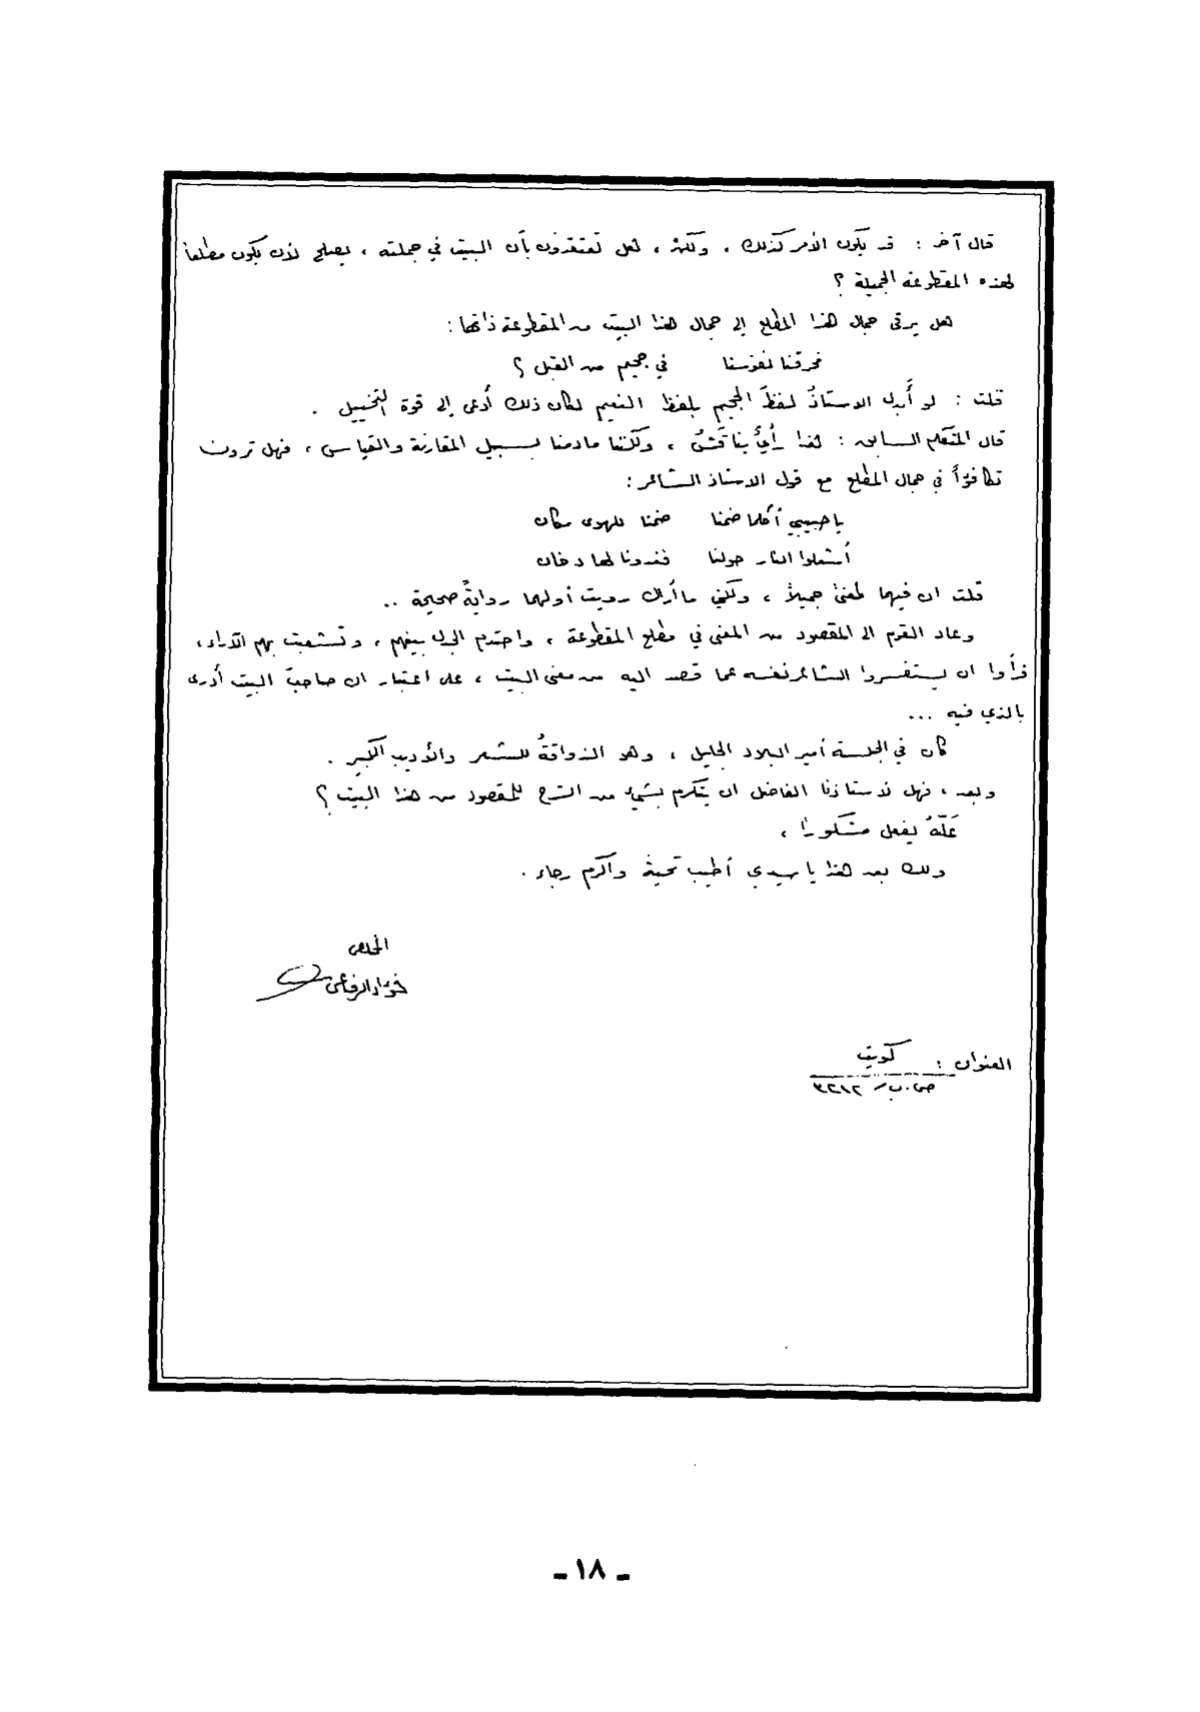 قال آخر : قد يكون الأمر كذلك ، ولكن ، هل تعتقدون بأن البيت في جملته ، يصلح لأن يكون مطلعاً
لهذه المقطوعة الجميلة ؟
هل يرقى جمال هذا المطلع إلى جمال هذا البيت من المقطوعة ذاتها :
نحرقنا نفوسنا في جحيم من القبل ؟
قلت : لو أبدل الاستاذُ لفظَ الجحيم بلفظ النعيم لكان ذلك أدعى إلى قوة التخييل .
قال المتكلم السابق : هذا رأيٌ يناقَشُ ، ولكننا مادمنا بسبيل المقارنة والقياس ، فهل ترون
تكافؤاً في جمال المطلع مع قول الاستاذ الشاعر :
يا حبيبي أكلما ضمنا ضمنا للهوى مكان
أشعلوا النار حولنا فغدونا لها دخان
قلت ان فيهما لمعنىً جميلاً ، ولكني ما أزال رويت أولهما روايةً صحيحة ..
وعاد القوم الى المقصود من المعنى في مطلع المقطوعة ، واحتدم الجدل بينهم ، وتشعبت بهم الآراء ،
فرأوا ان يستفسروا الشاعر نفسه عما قصد اليه من معنى البيت ، على اعتبار ان صاحبَ البيت أدرى
بالذي فيه ...
كان في الجلسة أمير البلاد الجليل ، وهو الذواقةُ للشعر والأديب الكبير .
وبعد ، فهل لاستاذنا الفاضل ان يتكرم بشيء من الشرح للمقصود من هذا البيت ؟
عَلّهُ يفعل مشكوراً ،
ولك بعد هذا يا سيدي أطيب تحية وأكرم رجاء .
المخلص
الرفاعي
العنوان : كويت
ص.ب / ٣٢١٢
ـ ١٨ ـ